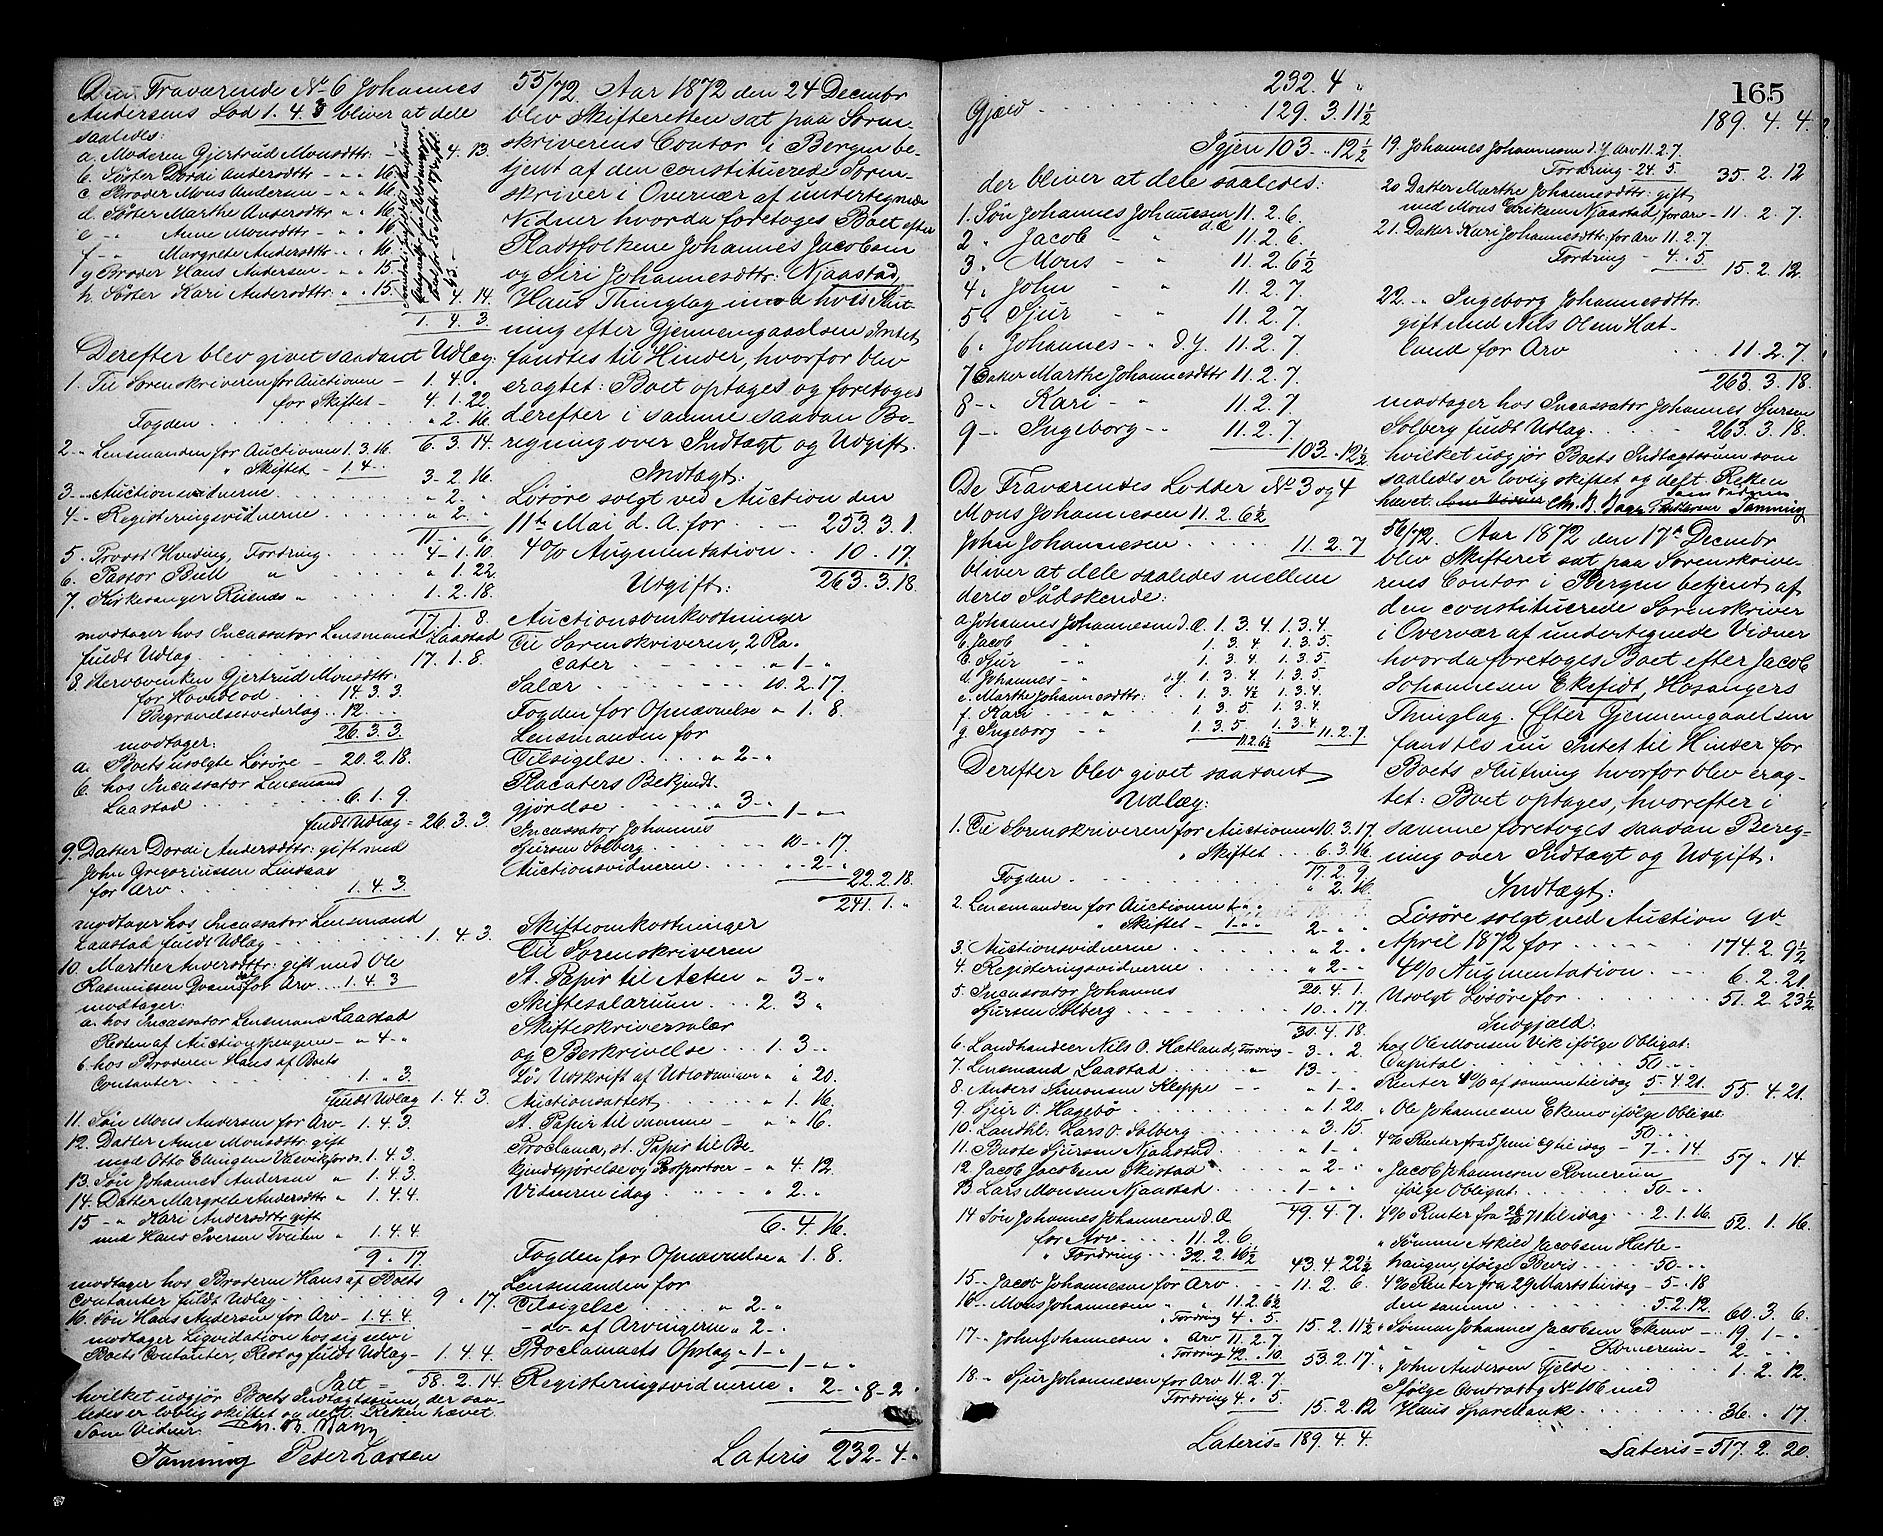 Den Fraværende No 6 Johannes
Andersens Lod 1. 4. 3 bliver at dele
saaledes:
a. Moderen Gjertrud Monsdttr: - 4. 13.
b. Søster Dordi Andersdttr - " " 16
c. Broder Mons Andersen - " " 16
d. Søster Marthe Andersdttr " " 16
e - " Anne Monsdttr " " 16
f - " Margrete Andersdttr " " 16
g Broder Hans Andersen - " " 15
h. Søster Kari Andersdttr " " 15
4. 14.
1. 4. 3.
Derefter blev givet saadant Udlæg:
1. Til Sorenskriveren for Auctionen - 1. 4. "
for Skiftet - 4. 1. 22.
Fogden " 2. 16.
6. 3. 14.
2 - Lensmanden for Auctionen 1. 3. 16.
" Skiftet - 1. 4 - 3 - 2. 16.
3 - Auctionsvidnerne " 2. "
4 - Registeringsvidnerne " 2. "
11. " 6.
5. Provst Hveding, Fordring 4 - 1. 10.
6. Pastor Bull " " 1. 22.
7. Kirkesanger Reienæs " 1. 2. 18.
17. 1. 8.
modtager hos Incassator Lensmand Laastad
fuldt Udlæg 17. 1. 8.
8. Stervboenken Gjertrud Monsdttr:
for Hovedlod 14. 3. 3.
" Begravelsesvederlag 12. "
26. 3. 3.
modtager:
a. Boets usolgte Løsøre - 20. 2. 18.
b. hos Incassator Lensmand
Laastad 6. 1. 9.
fuldt Udlæg = 26. 3. 3.
9. Datter Dordi Andersdttr: gift med
John Gregoriussen Lindaas
for Arv 1. 4. 3.
modtager hos Incassator Lensmand
Laastad fuldt Udlæg 1. 4. 3.
10. Marthe Andersdttr: gift med Ole
Rasmussen for Arv 1. 4. 3
modtager:
a. hos Incassator Lensmand Laastad
Resten af Auctionspengene - " 4 - "
b. hos Broderen Hans af Boets
Contanter 1. " 3.
fuldt Udlæg 1. 4. 3.
11. Søn Mons Andersen for Arv - 1. 4. 3.
12. Datter Anne Monsdttr gift
med Otto Ellingsen 1. 4. 3.
13. Søn Johannes Andersen " 1. 4. 3.
14. Datter Margrete Andersdttr " 1. 4. 4.
15 - " Kari Andersdttr gift
med Hans Iversen Tveiten " 1. 4. 4.
9. " 17.
modtager hos Broderen Hans af Boets
Contanter fuldt Udlæg 9. " 17.
16. Søn Hans Andersen for Arv - 1. 4. 4.
modtager Liquidation hos sig selv i
Boets Contanter, Rest og fuldt Udlæg - 1. 4. 4.
Talt = 58. 2. 14.
hvilket udgjør Boets Indtægtssum, der saa-
ledes er lovlig skiftet og delt. Retten hævet.
Som Vidner:
Tanning Peter Larsen
55/72. Aar 1872 den 24 Decmbr
blev Skifteretten sat paa Soren-
skriverens Contor i Bergen be-
tjent af den constituerede Soren-
skriver i Overvær af undertegnede
Vidner hvorda foretoges Boet efter
Pladsfolkene Johannes Jacobsen
og Siri Johannesdttr: Njaastad,
Haus Thinglag imod hvis Slut-
ning efter Gjennemgaaelsen Intet
fandtes til Hinder, hvorfor blev
eragtet: Boet optages og foretoges
derefter i samme saadan Be-
regning over Indtægt og Udgift.
Indtægt:
Løsøre solgt ved Auction den
11te Mai d. A. for - 253. 3. 1.
4 o/o Augmentation 10. " 17.
263. 3. 18.
Udgift:
Auctionsomkostninger
Til Sorenskriveren, 2 Pla-
cater " 1 - "
Salær 10. 2. 17.
Fogden for Opnævnelse " 1. 8.
Lensmanden for
Tilsigelse " 2 - "
Placaters Bekjendt-
gjørelse " 3 - " 1 - "
Incassator Johannes
Sjursen Solberg 10 - " 17.
Auctionsvidnerne " 2 - "
22. 2. 18.
241. 1. "
Skifteomkostninger
Til Sorenskriveren
St. Papir til Acten " 3 - "
Skiftesalarium 2. 3 "
Skifteskriversalær
og Beskrivelse 1. 3 - "
Løs Udskrift af Udlodningen " " 20.
Auctionsattest " 1. 16.
St. Papir til samme - " " 16.
Proclama, st. Papir til Be-
kjendtgjørelse og Postportoer - " 4. 12.
Vidneren idag " 2. "
6. 4. 16.
Fogden for Opnævnelse " 1. 8.
Lensmanden for
Tilsigelse " 2. "
- do - af Arvingerne " 2 - "
Proclamaets Opslag " 1 - " 1 - "
Registeringsvidnerne " 2 - " 8 - 2 "
Lateris 232. 4. "
165
232. 4 "
Gjæld 129. 3. 11½
Igjen 103 - " 12½
der bliver at dele saaledes:
1. Søn Johannes Johannesen d.Æ 11. 2. 6.
2 " Jacob - " 11. 2. 6.
3 " Mons - " 11. 2. 6½
4 " John - " 11. 2. 7.
5 " Sjur - " 11. 2. 7.
6 " Johannes - " d.Y. 11. 2. 7.
7 Datter Marthe Johannesdttr 11. 2. 7.
8 - " Kari - " 11. 2. 7.
9 - " Ingeborg - " 11. 2. 7.
103 - " 12½
De Fraværendes Lodder No 3 og 4
Mons Johannesen 11. 2. 6½
John Johannesen 11. 2. 7
bliver at dele saaledes mellem
deres Sødskende:
a Johannes Johannesen d.Æ. 1. 3. 4. 1. 3. 4.
b. Jacob - " 1. 3. 4. 1. 3. 5.
c. Sjur - " 1. 3. 4. 1. 3. 5
d. Johannes - " d.y. 1. 3. 4 1. 3. 5.
e. Marthe Johannesdttr: 1. 3. 4½ 1. 3. 4.
f. Kari " 1. 3. 5 1. 3. 4.
g Ingeborg " 1. 3. 5 1. 3. 4
11. 2. 6½ 11. 2. 7
Derefter blev givet saadant
Udlæg:
1. Til Sorenskriveren for Auctionen 10. 3. 17.
" Skiftet 6. 3. 16.
17. 2. 9.
Fogden " 2. 16.
2. Lensmanden for Auctionen 1 " "
" Skiftet - 1 - " 2 - "
3. Auctionsvidnerne " 2 - "
4. Registeringsvidnerne " 2 - "
20. 4. 1.
5. Incassator Johannes
Sjursen Solberg 10. " 17.
30. 4. 18.
6. Landhandler Nils O. Hætland, Fordring - 3 - " 2.
7. Lensmand Laastad " 13 - "
8. Anders Simonsen Kleppe " 1 - "
9. Sjur O. Hagebø " 1. 20.
10. Landhl: Lars O. Solberg " 3. 15.
11. Baste Sjursen Njaastad " 1 - "
12. Jacob Jacobsen Skistad " 2 - "
13. Lars Monsen Njaastad 1 - "
49. 4. 7.
14 Søn Johannes Johannesen d.Æ
for Arv 11. 2. 6.
" Fordring 32. 2. 16½
43. 4. 22½
15 - Jacob Johannesen for Arv 11. 2. 6.
16 - Mons Johannesen " " 11. 2. 6½
" Fordring 4. " 5.
15. 2. 11½
17 - John Johannesen " Arv 11. 2. 7
" Fordring 42. " 10.
53. 2. 17.
18 - Sjur Johannesen for Arv 11. 2. 7.
Fordring 4. " 5.
15. 2. 12
Lateris = 189. 4. 4.
189. 4. 4.
19. Johannes Johannesen d.Y Arv 11. 2. 7
Fordring - 24. " 5. 35. 2. 12
20 Datter Marthe Johannesdttr: gift
med Mons Eriksen Njaastad, for arv - 11. 2. 7.
21. Datter Kari Johannesdttr: for Arv 11. 2. 7.
Fordring - 4. " 5
15. 2. 12.
22 - " Ingeborg Johannesdttr:
gift med Nils Olsen Hæt-
land for Arv 11. 2. 7
263. 3. 18.
modtager hos Incassator Johannes Sjursen
Solberg fuldt Udlæg 263. 3. 18.
hvilket udgjør Boets Indtægtssum som
saaledes er lovlig skiftet og delt. Retten
hævet. Som Vidner
Tanning
56/72. Aar 1872 den 17de Decmbr
blev Skifteret sat paa Sorenskrive-
rens Contor i Bergen betjent af
den constituerede Sorenskriver
i Overvær af undertegnede Vidner
hvorda foretoges Boet efter Jacob
Johannesen Ekefidt, Hosangers
Thinglag. Efter Gjennemgaaelsen
fandtes nu Intet til Hinder for
Boets Slutning hvorfor blev erag-
tet: Boet optages, hvorefter i
samme foretoges saadan Bereg-
ning over Indtægt og Udgift.
Indtægt:
Løsøre solgt ved Auction
April 1872 for 174. 2. 9½
4 o/o Augmentation 6. 2. 21.
Usolgt Løsøre for 51. 2. 23½
Indgjæld:
hos Ole Monsen Vik ifølge Obligat:
Capital 50 - "
Renter 4% af samme til idag 5. 4. 21. 55. 4. 21.
" Ole Johannesen Ekemo ifølge Obligat:
50 - "
4% Renter fra 5 Juni 69 til idag - 7 - " 14 57 " 14.
" Jacob Johannesen Romereim
ifølge Obligat: 50 - "
4% Renter fra 26/10 71 til idag 2. 1. 16. 52. 1. 16.
" Sønnen Askild Jacobsen Hatle-
haugen, ifølge Bevis 50 - "
4% Renter fra 29 Marts til idag - 5 - 18
den samme 5. 2. 12. 60. 3. 6.
" Sønnen Johannes Jacobsen Ekemo - 19. 1 - "
" " Romereim - 2 - "
" John Andersen Tjelde 1. 2. 12.
Ifølge Contrabog No 106 med
Haus Sparebank 36. " 17.
Lateris = 517. 2. 20.